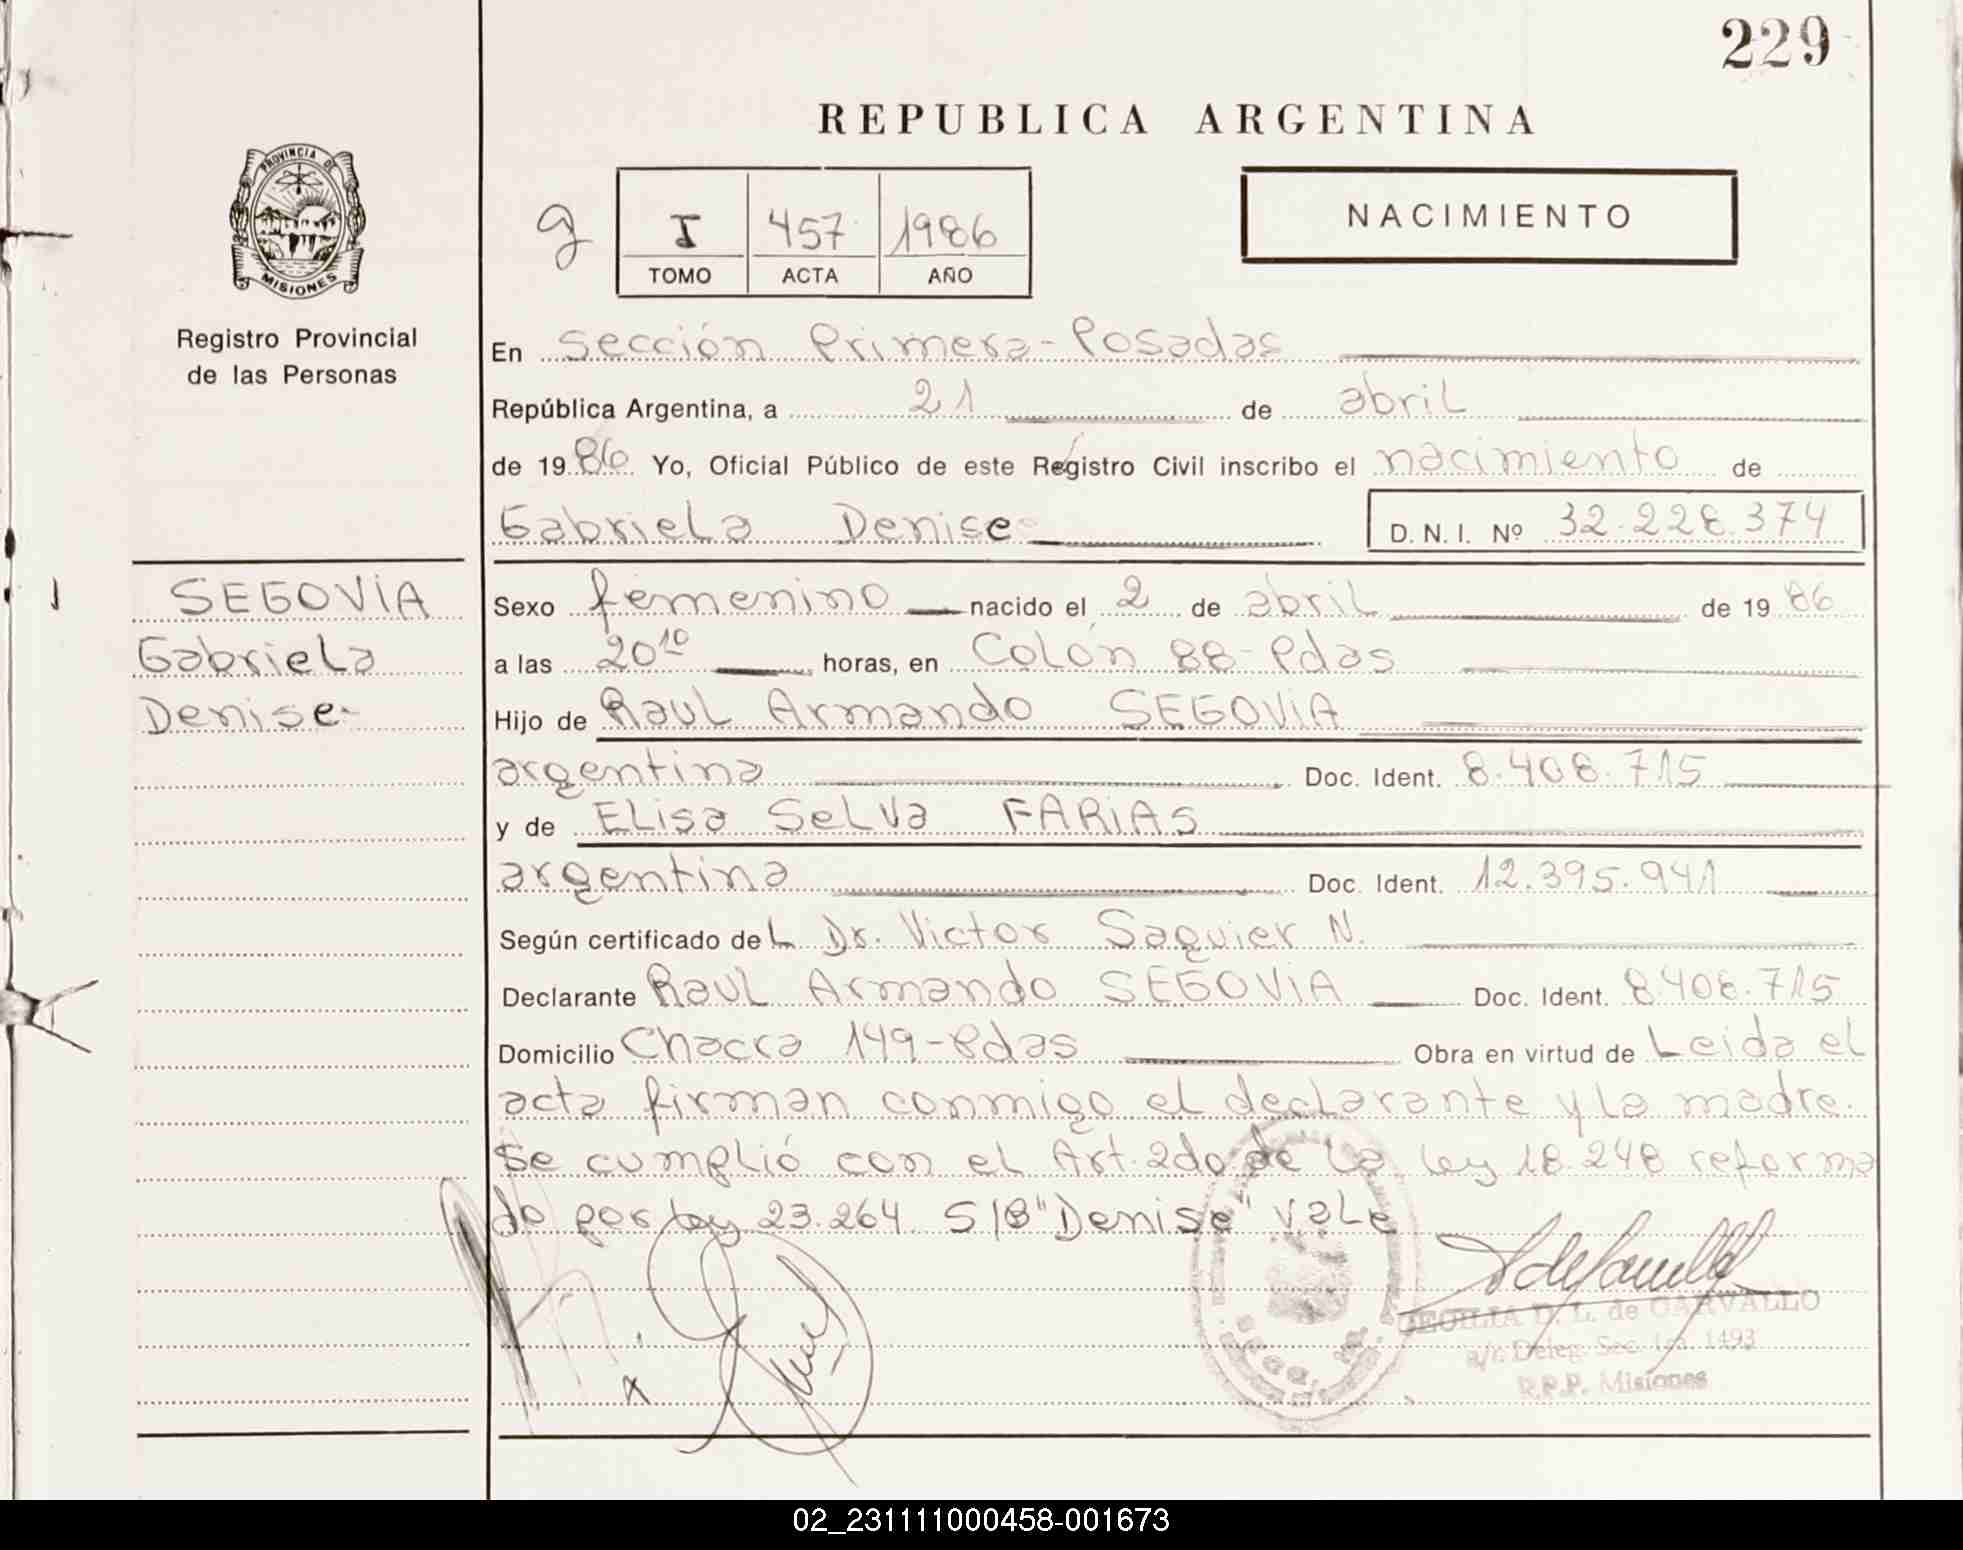 229
REPUBLICA ARGENTINA
PROVINCIA DE
MISIONES
Registro Provincial
de las Personas
g
I 457 1986
TOMO ACTA AÑO
NACIMIENTO
En Sección Primera-Posadas
República Argentina, a 21 de abril
de 1986 Yo, Oficial Público de este Registro Civil inscribo el nacimiento de
Gabriela Denise D. N. I. Nº 32.228.374
SEGOVIA
Gabriela
Denise-
Sexo femenino nacido el 2 de abril de 1986
a las 20¹⁰ horas, en Colón 88-Pdas
Hijo de Raul Armando SEGOVIA
argentina Doc. Ident. 8.408.715
y de Elisa Selva FARIAS
argentina Doc. Ident. 12.395.941
Según certificado del Dr. Victor Saguier N.
Declarante Raul Armando SEGOVIA Doc. Ident. 8.408.715
Domicilio Chacra 149-Pdas Obra en virtud de Leida el
acta firman conmigo el declarante y la madre.
Se cumplió con el Art. 2do de la ley 18.248 reforma
do por ley 23.264. S/B "Denise" vale
CECILIA D. L. de CARVALLO
a/c. Deleg. Sec. 1ra. 1493
R.P.P. Misiones
02_231111000458-001673